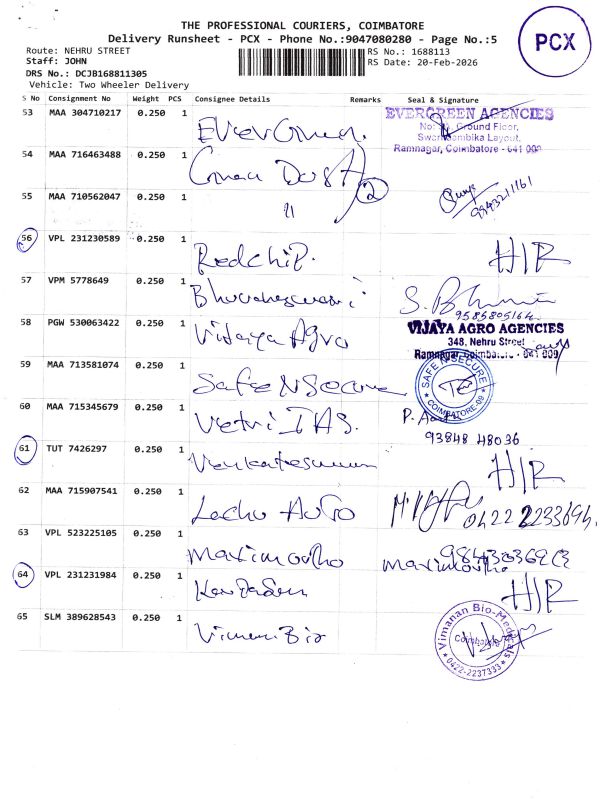 THE PROFESSIONAL COURIERS, COIMBATORE
Delivery Runsheet - PCX - Phone No.:9047080280 - Page No.:5
PCX
Route: NEHRU STREET
Staff: JOHN
DRS No.: DCJB168811305
Vehicle: Two Wheeler Delivery
RS No.: 1688113
RS Date: 20-Feb-2026
S No Consignment No Weight PCS Consignee Details Remarks Seal & Signature
53 MAA 304710217 0.250 1 Evergreen
EVERGREEN AGENCIES
Ground Floor,
Swarnambika Layout,
Ramnagar, Coimbatore - 641 009
54 MAA 716463488 0.250 1
2
55 MAA 710562047 0.250 1 "
9943211161
56 VPL 231230589 0.250 1 Redchip. H/R
57 VPM 5778649 0.250 1 Bhuvaneswari
58 PGW 530063422 0.250 1 Vijaya Agro
VIJAYA AGRO AGENCIES
348, Nehru Street
Ramnagar, Coimbatore - 641 009
59 MAA 713581074 0.250 1 Safe N Secure
SAFE N SECURE
COIMBATORE-09
60 MAA 715345679 0.250 1 Vetri IAS.
93848 48036
61 TUT 7426297 0.250 1 H/R
62 MAA 715907541 0.250 1 Auto
0422 2233694
63 VPL 523225105 0.250 1
64 VPL 231231984 0.250 1 H/R
65 SLM 389628543 0.250 1 Viman Bio
Vimanan Bio-Medicals
Coimbatore
0422-2237333